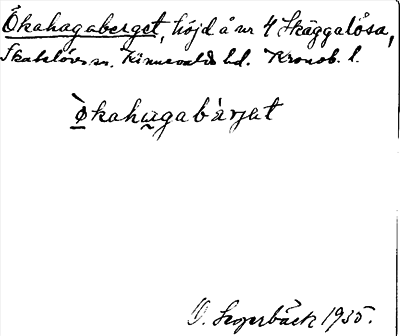 Ökahagaberget, höjd å nr 4 Skäggalösa,
Skatelövs sn. Kinnevalds hd. Kronob. l.
ò̱kahu̱gabàrjat
1935.